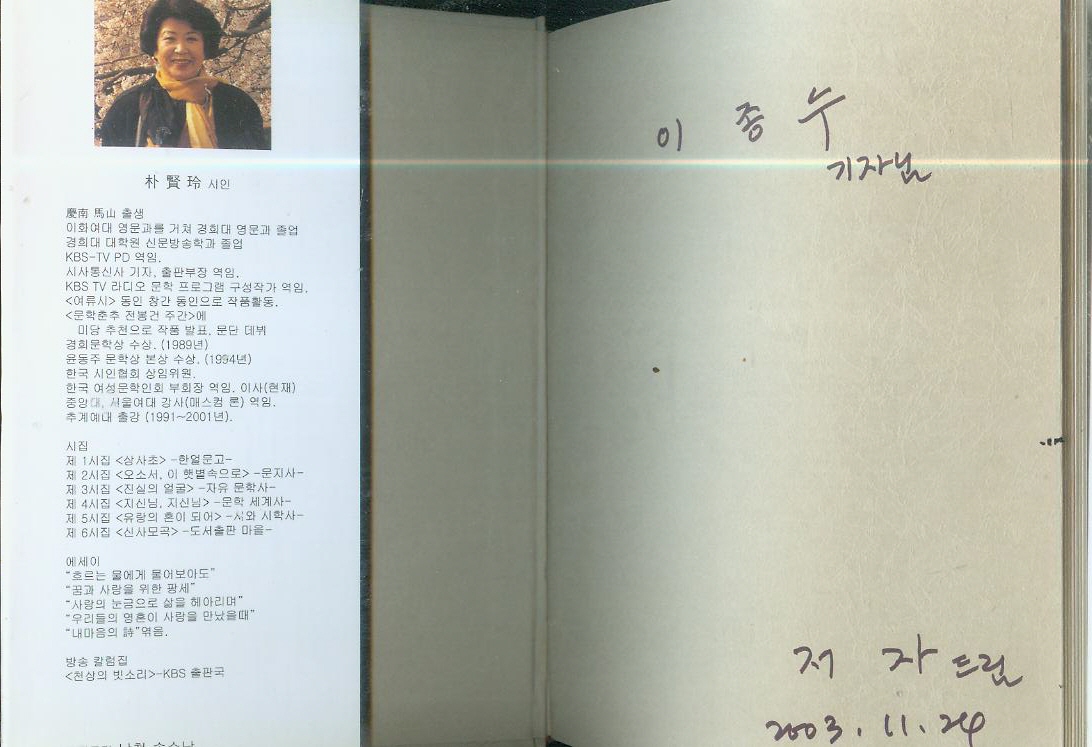 朴 賢 玲 시인
慶南 馬山 출생
이화여대 영문과를 거쳐 경희대 영문과 졸업
경희대 대학원 신문방송학과 졸업
KBS-TV PD 역임.
시사통신사 기자, 출판부장 역임.
KBS TV 라디오 문학 프로그램 구성작가 역임.
<여류시> 동인 창간 동인으로 작품활동.
<문학춘추 전봉건 주간>에
미당 추천으로 작품 발표. 문단 데뷔
경희문학상 수상. (1989년)
윤동주 문학상 본상 수상. (1994년)
한국 시인협회 상임위원.
한국 여성문학인회 부회장 역임. 이사(현재)
중앙대, 서울여대 강사(매스컴 론) 역임.
추계예대 출강 (1991~2001년).
시집
제 1시집 <상사초> -한얼문고-
제 2시집 <오소서, 이 햇볕속으로> -문지사-
제 3시집 <진실의 얼굴> -자유 문학사-
제 4시집 <지신님, 지신님> -문학 세계사-
제 5시집 <유랑의 혼이 되어> -시와 시학사-
제 6시집 <신사모곡> -도서출판 마을-
에세이
“흐르는 물에게 물어보아도”
“꿈과 사랑을 위한 팡세”
“사랑의 눈금으로 삶을 헤아리며”
“우리들의 영혼이 사랑을 만났을때”
“내마음의 詩”엮음.
방송 칼럼집
<천상의 빗소리>-KBS 출판국
이 종 누
기자님
저 자 드림
2003. 11. 24